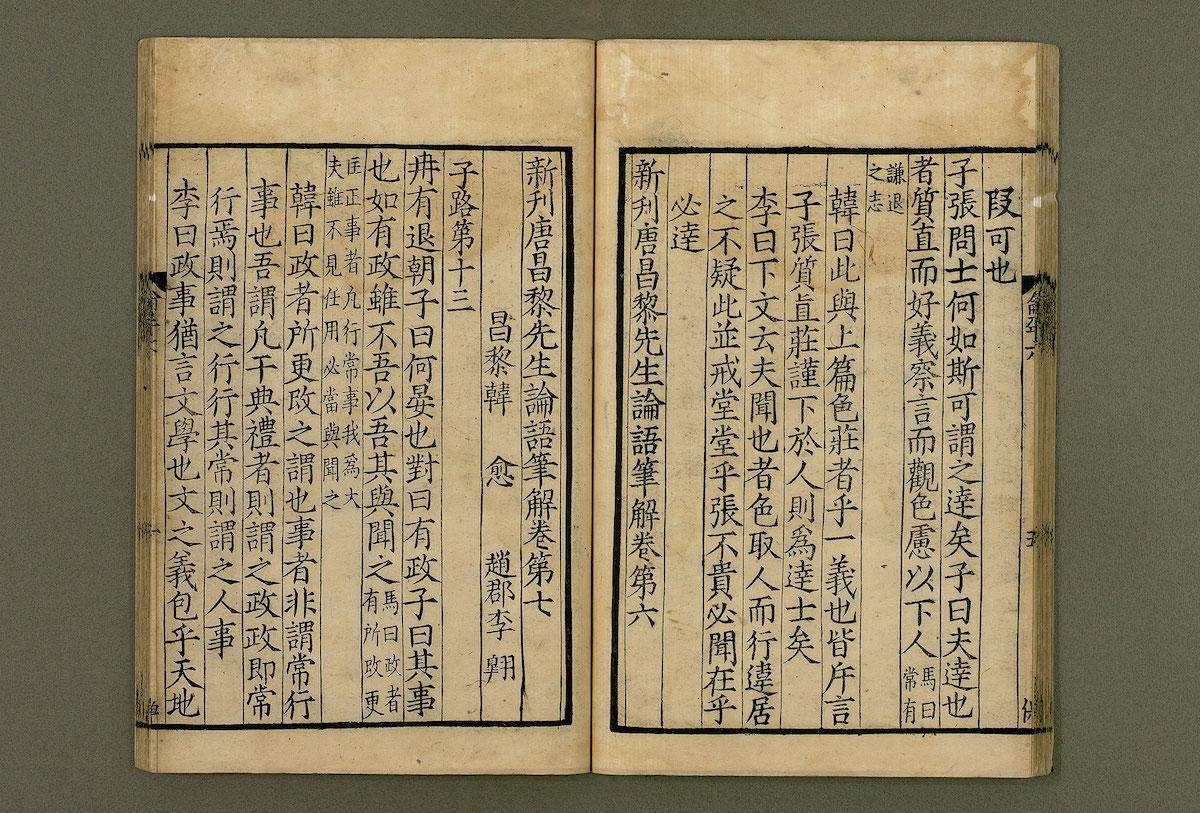 叚可也
子張問士何如斯可謂之達矣子曰夫達也
者質直而好義察言而觀色慮以下人馬曰常有
謙退之志
韓曰此與上篇色莊者乎一義也皆斥言
子張質直莊謹下於人則爲達士矣
李曰下文云夫聞也者色取人而行違居
之不疑此並戒堂堂乎張不貴必聞在乎
必達
新刋唐昌黎先生論語筆解卷第六
新刋唐昌黎先生論語筆解卷第七
昌黎韓 愈 趙郡李 翱
子路第十三
冉有退朝子曰何晏也對曰有政子曰其事
也如有政雖不吾以吾其與聞之馬曰政者有所改更
匡正事者凡行常事我爲大夫雖不見任用必當與聞之
韓曰政者所更改之謂也事者非謂常行
事也吾謂凡干典禮者則謂之政政即常
行焉則謂之行行其常則謂之人事
李曰政事猶言文學也文之義包乎天地